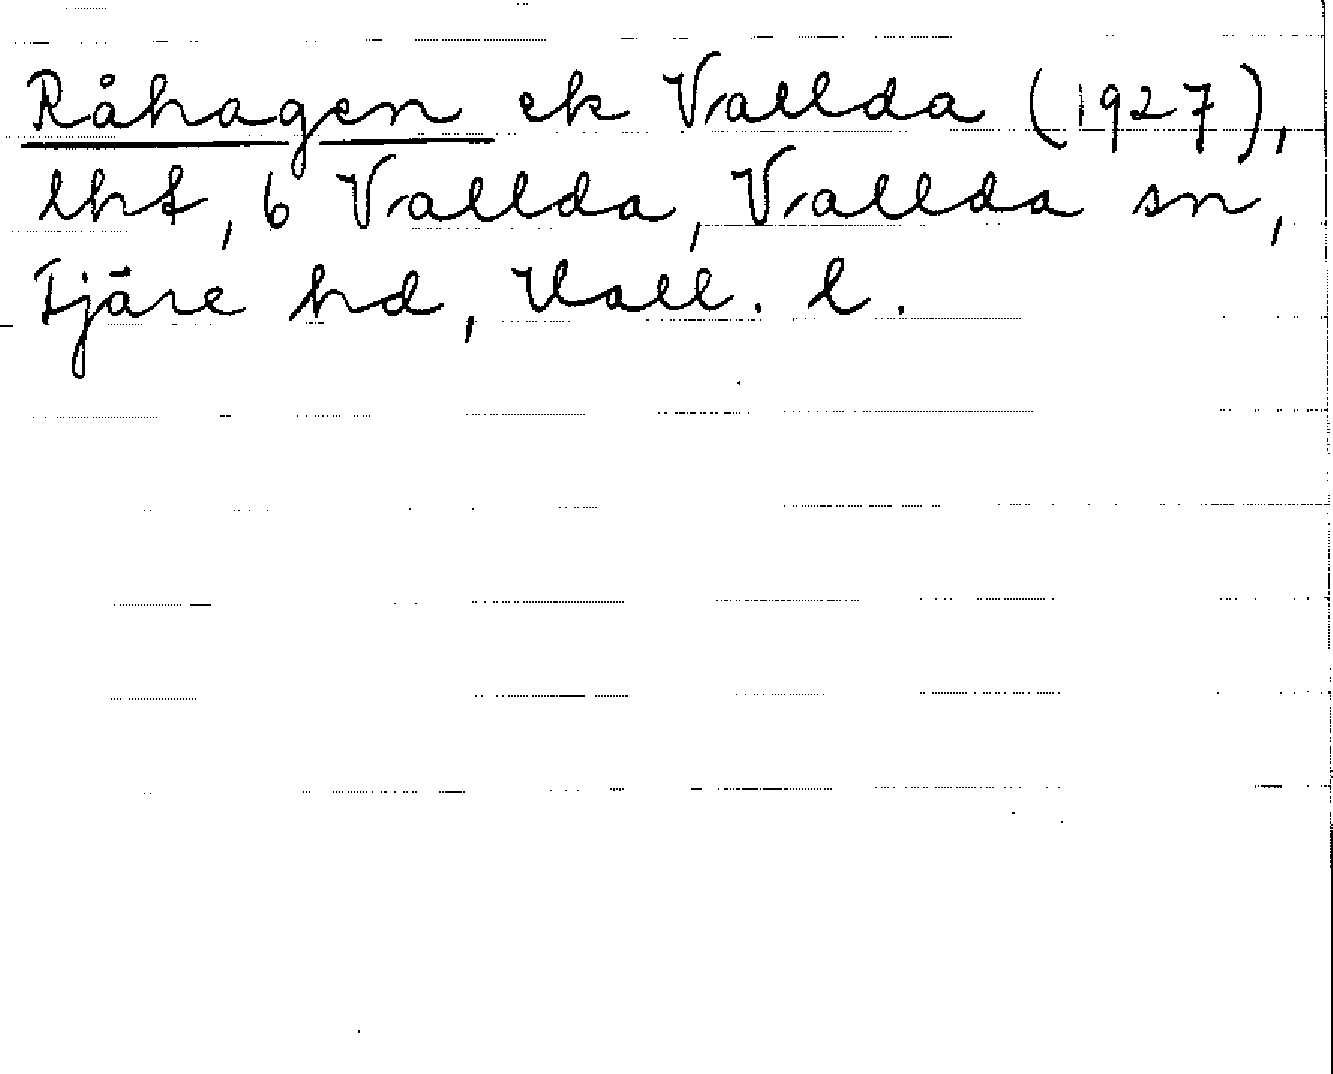 Råhagen ek Vallda (1927),
lht, 6 Vallda, Vallda sn,
Fjäre hd, Hall. l.